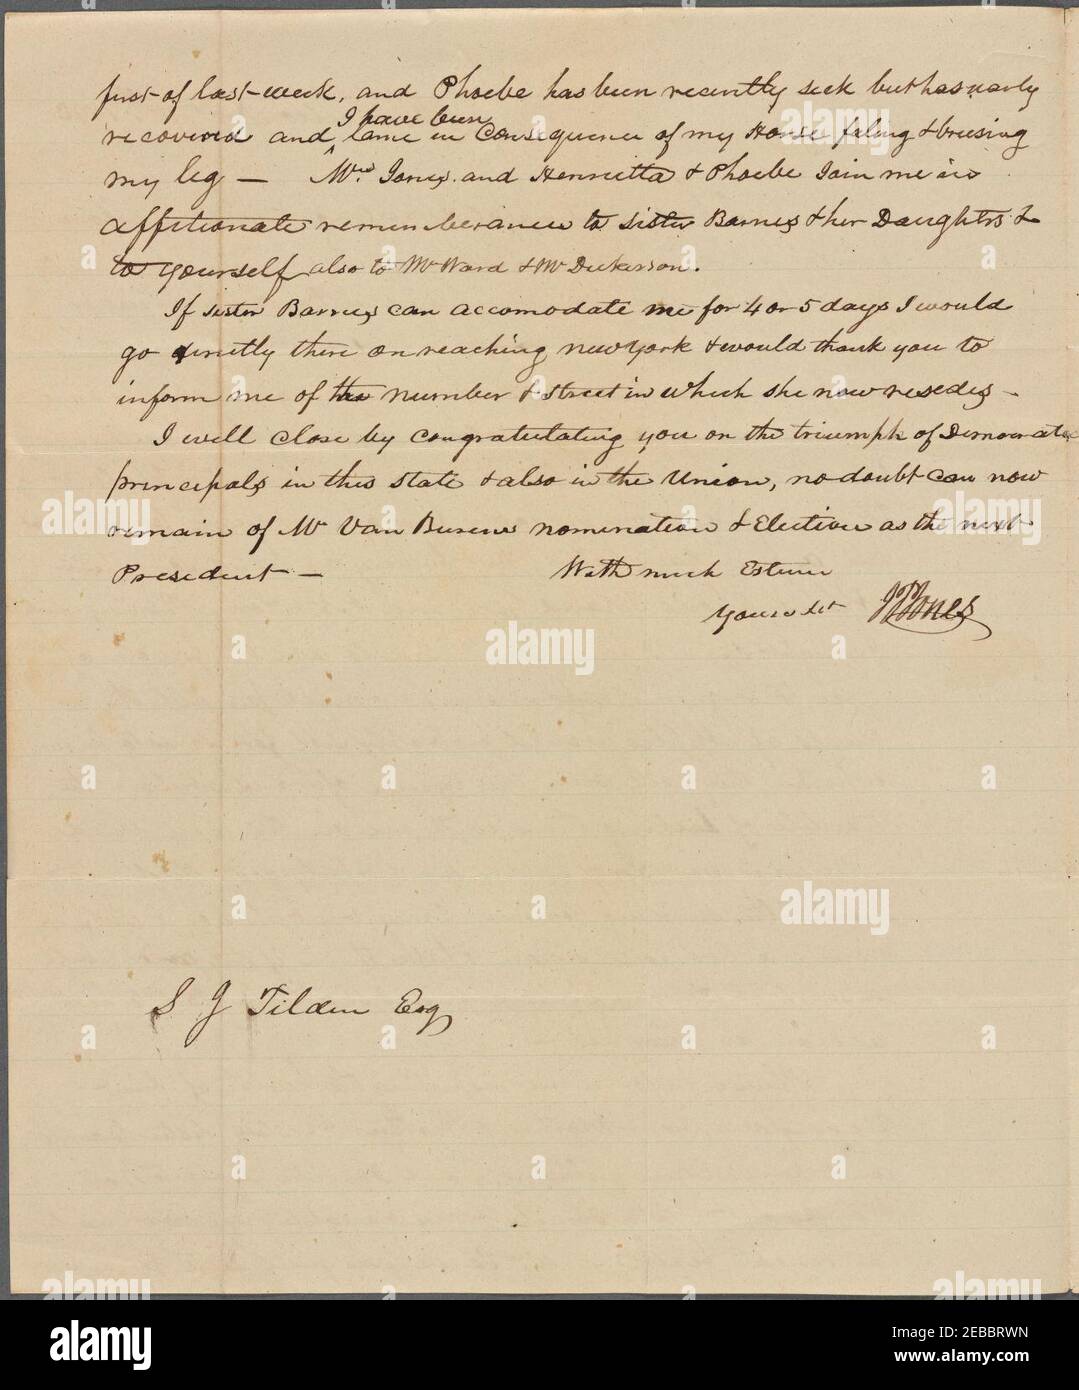 first of last week, and Phoebe has been recently sick but has nearly
I have been
recovered and ^ lame in Consequence of my Horse faling & bruising
my leg — Mrs Jones and Henrietta & Phoebe Join me in
affitionate rememberance to sister Barnes & her Daughters &
to yourself also to Mr Ward & Mr Dickarson.
If sister Barnes can accomodate me for 4 or 5 days I would
go directly there on reaching new york & would thank you to
inform me of the number & street in which she now resedes –
I will close by congratulating you on the triumph of Democratic
principals in this state & also in the Union, no doubt can now
remain of Mr Van Burens nomination & Election as the next
President –
With much Esteem
Yours &c J T Jones
S J Tilden Esq
alamy
Image ID: 2EBBRWN
www.alamy.com